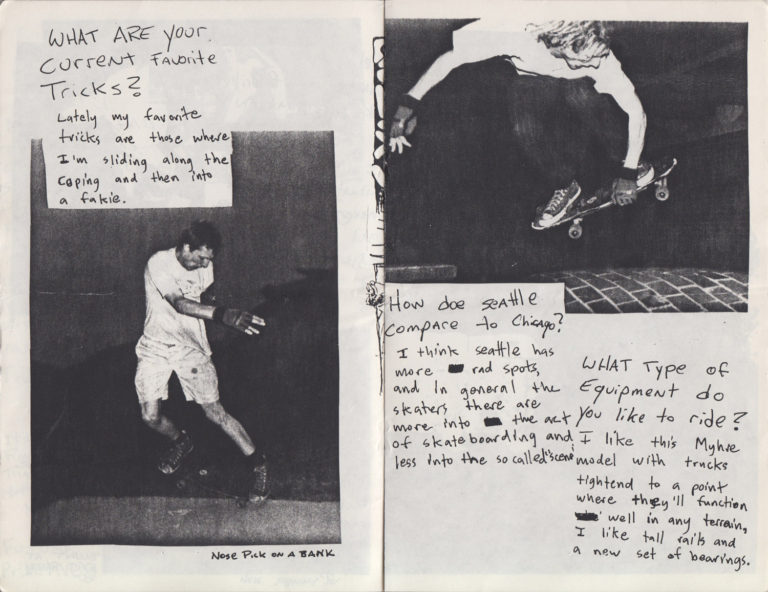 WHAT ARE YOUR
CURRENT FAVORITE
TRICKS?
Lately my favorite
tricks are those where
I'm sliding along the
coping and then into
a fakie.
NOSE PICK ON A BANK
How doe SEATTLE
COMPARE to Chicago?
I think seattle has
more rad spots,
and In general the
skaters there are
more into the act
of skateboarding and
less into the so called "scene"
WHAT Type of
Equipment do
You like to ride?
I like this Myhre
model with trucks
tightend to a point
where they'll function
well in any terrain,
I like tall rails and
a new set of bearings.